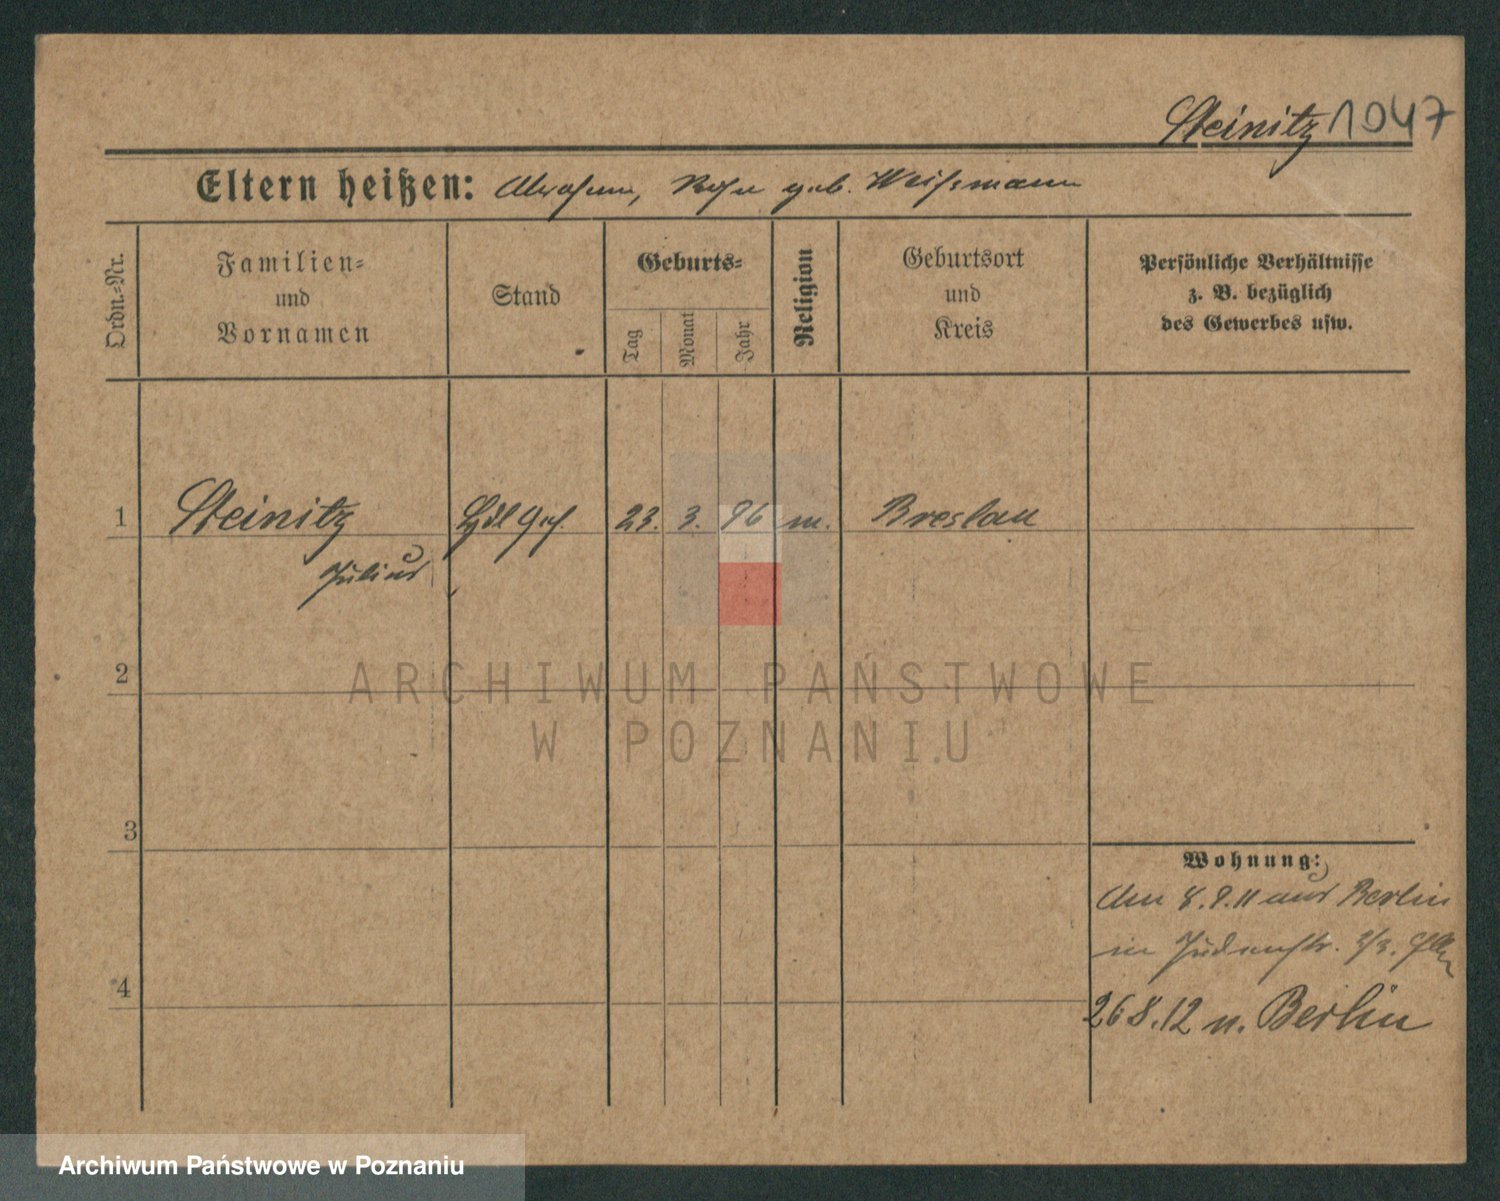 Steinitz 1047
Eltern heißen: Abraham, Rosa geb. Weißmann
Ordn.-Nr.
Familien-
und
Vornamen
Stand
Geburts-
Tag
Monat
Jahr
Religion
Geburtsort
und
Kreis
Persönliche Verhältnisse
z. B. bezüglich
des Gewerbes usw.
1 Steinitz Hdl Geh. 23. 3. 96 m. Breslau
Julius
2
3
4
Wohnung:
Am 8.9.11 aus Berlin
in Judenstr.
26 8.12 n. Berlin
ARCHIWUM PAŃSTWOWE
W POZNANIU
Archiwum Państwowe w Poznaniu